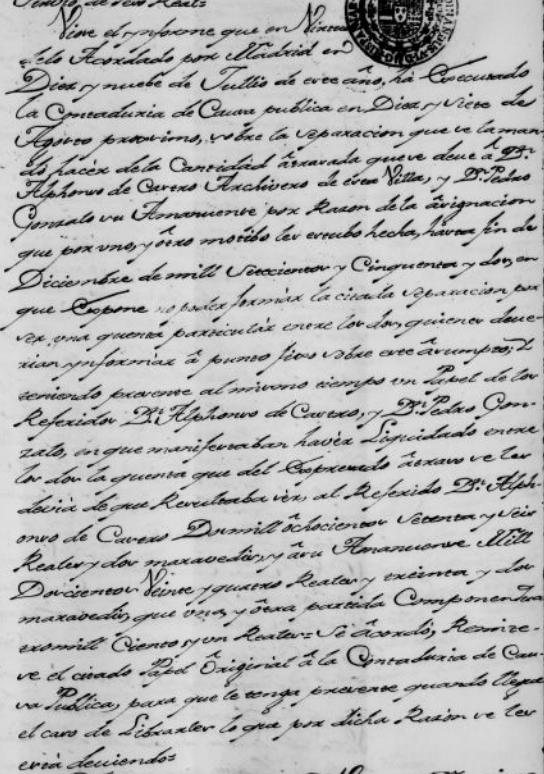 Viose el ynforme que en Virtud
delo Acordado por Madrid en
Diez, y nuebe de Jullio de este año, há Executado
la Contaduria de Causa publica en Diez, y siete de
Agosto proximo, sobre la separacion que se la man-
dó hacer dela Cantidad atrasada que se deve â Dn.
Alphonso de Castro Archivero de esta Villa, y Dn. Pedro
Gonzalo su Amanuense por Razon de la asignacion
que por uno, y otro motibo les estubo hecha, hasta fin de
Diciembre de mill Setecientos y Cinquenta y dos, en
que Expone no poder formar la citada separacion, por
ser una quenta particular entre los dos, quienes deve-
rian ynformar â punto fixo sobre este asumpto; Y
teniendo presente al mismo tiempo un Papel de los
Referidos Dn. Alphonso de Castro, y Dn. Pedro Gon-
zalo, en que manifestaban haver Liquidado entre
los dos la quenta que del Expresado atraso se les
devia de que Resultaba ser, al Referido Dn. Alph-
onso de Castro Dosmill ochocientos Setenta y Seis
Reales y dos maravedis, y â su Amanuense Mill
Doscientos Veinte y quatro Reales y treinta y dos
maravedis, que una, y otra partida Componen qua
tromill Ciento y un Reales = Se acordó, Remite-
se el citado Papel Original â la Contaduria de Cau-
sa Publica, para que le tenga presente quando llegue
el caso de Librarles lo que por dicha Razon se les
está deviendo =